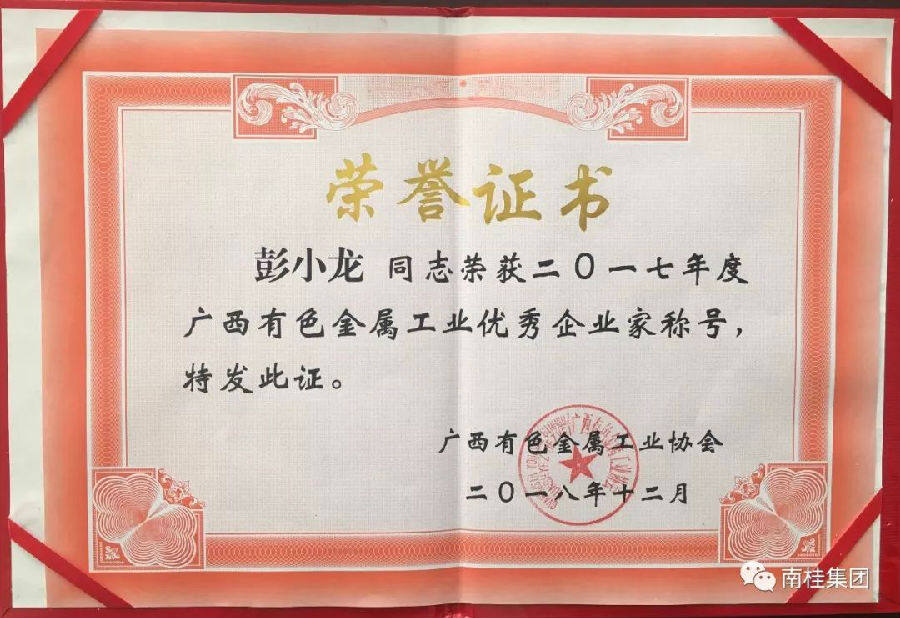 荣誉证书
彭小龙 同志荣获二〇一七年度
广西有色金属工业优秀企业家称号，
特发此证。
广西有色金属工业协会
二〇一八年十二月
南桂集团